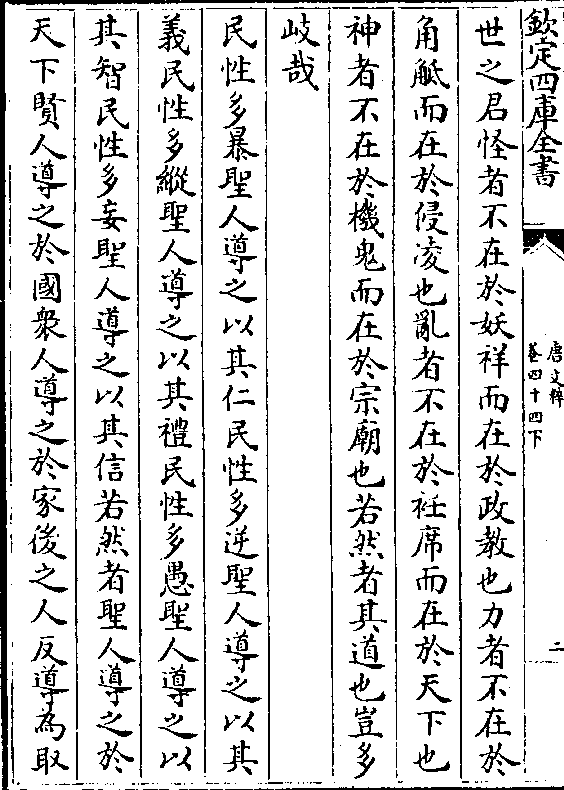 欽定四庫全書
唐文粹
卷四十四下
二
世之君怪者不在於妖祥而在於政教也力者不在於
角觝而在於侵凌也亂者不在於衽席而在於天下也
神者不在於機鬼而在於宗廟也若然者其道也豈多
岐哉
民性多暴聖人導之以其仁民性多逆聖人導之以其
義民性多縱聖人導之以其禮民性多愚聖人導之以
其智民性多妄聖人導之以其信若然者聖人導之於
天下賢人導之於國衆人導之於家後之人反導為取